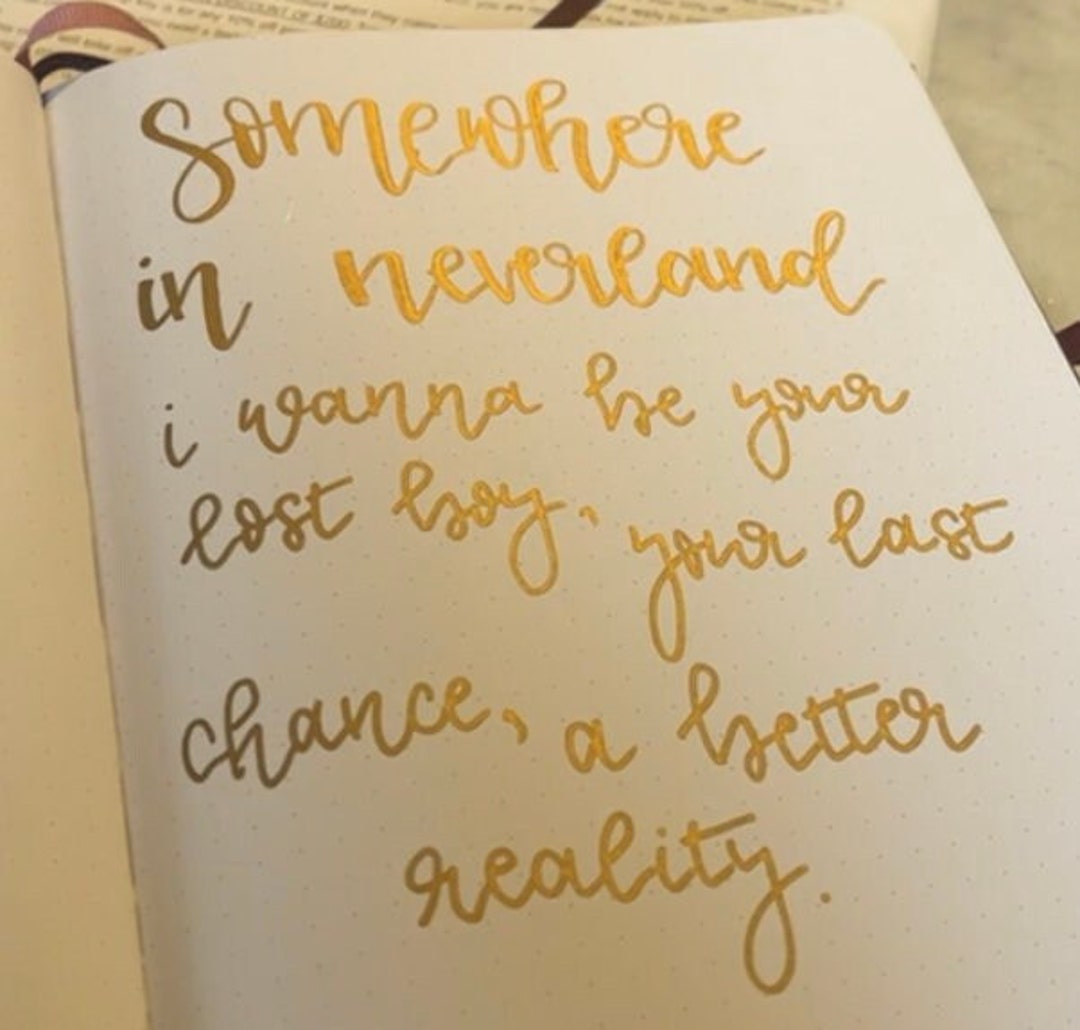 Somewhere
in neverland
i wanna be your
lost boy, your last
chance, a better
reality.